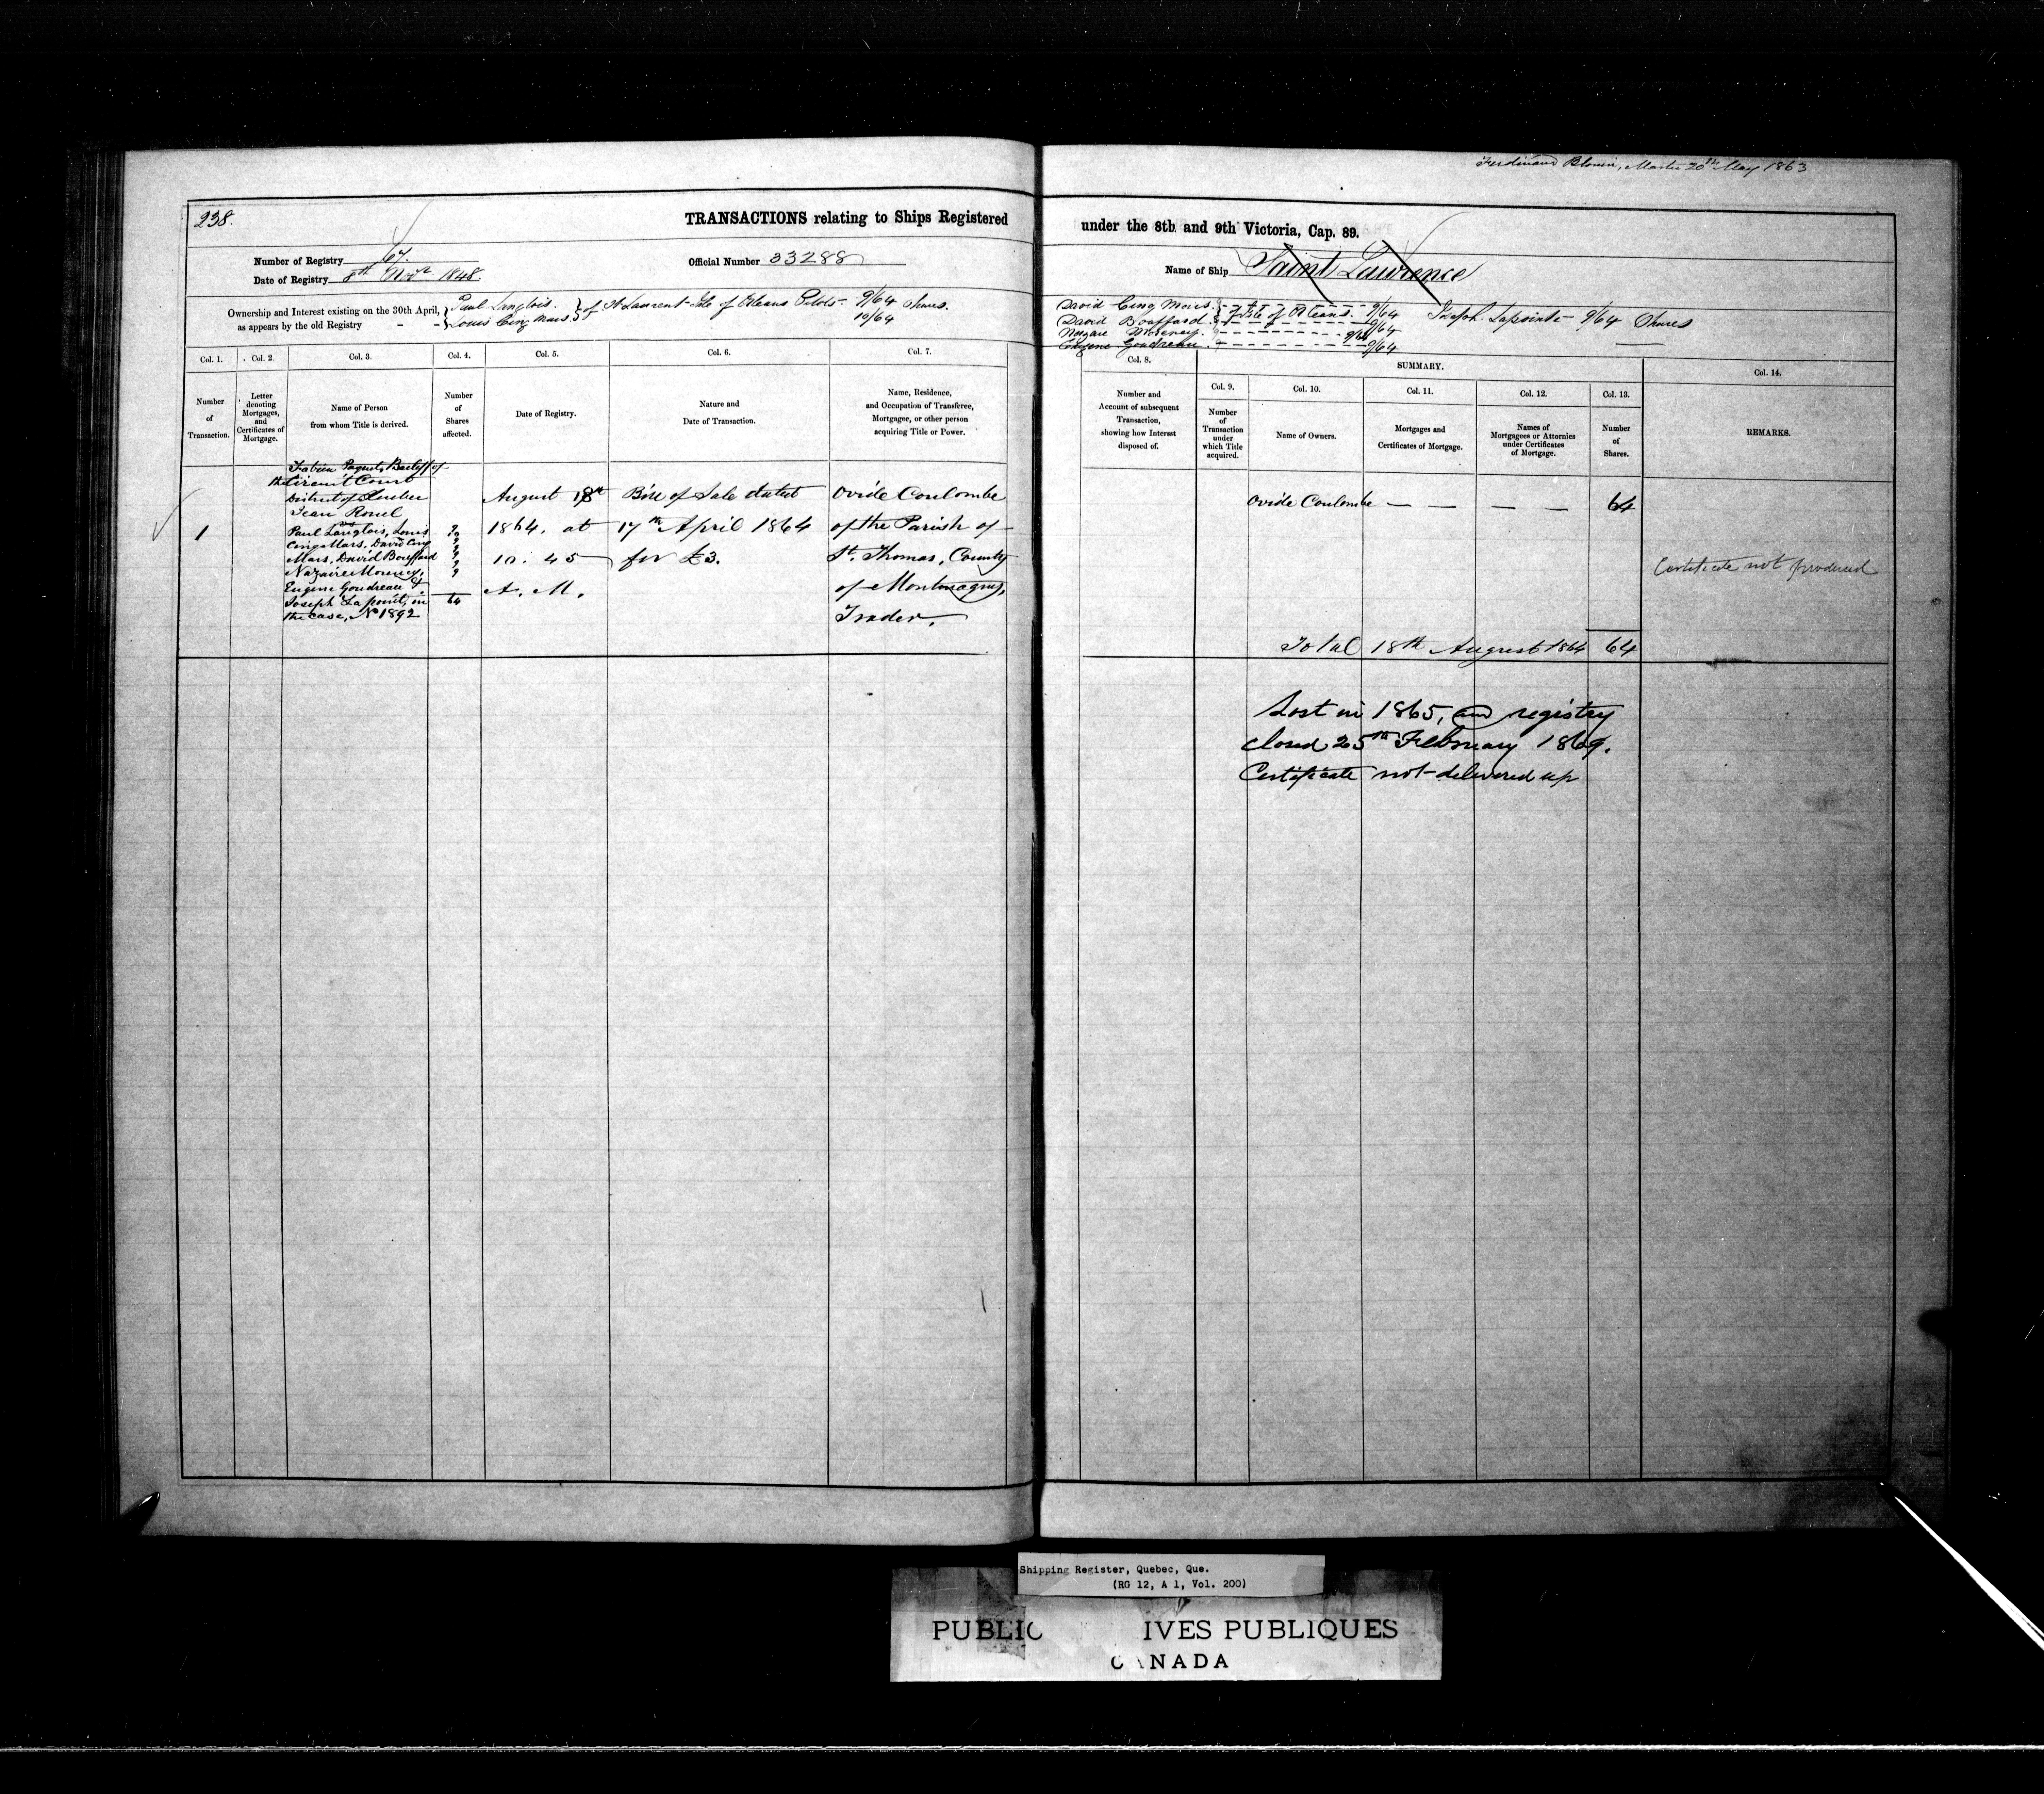 Ferdinand Blouin, Master 20th May 1863
238.
TRANSACTIONS relating to Ships Registered
under the 8th and 9th Victoria, Cap. 89.
Number of Registry 67.
Official Number 33288
Name of Ship Saint Lawrence
Date of Registry 8th Novr 1848
Ownership and Interest existing on the 30th April,
as appears by the old Registry
Paul Langlois. 
Louis Cinq Mars.
of St Laurent Isle of Orleans Pilots - 9/64 Shares.
10/64
David Cinq Mars. of Isle of Orleans. 9/64
David Bouffard. 9/64
Nazare Morency. 9/64
Eugene Goudreau. 9/64
Joseph Lapointe - 9/64 Shares
Col. 1.
Col. 2.
Col. 3.
Col. 4.
Col. 5.
Col. 6.
Col. 7.
Number
of
Transaction.
Letter
denoting
Mortgages,
and
Certificates of
Mortgage.
Name of Person
from whom Title is derived.
Number
of
Shares
affected.
Date of Registry.
Nature and
Date of Transaction.
Name, Residence,
and Occupation of Transferee,
Mortgagee, or other person
acquiring Title or Power.
Col. 8.
SUMMARY.
Col. 14.
Col. 9.
Col. 10.
Col. 11.
Col. 12.
Col. 13.
Number and
Account of subsequent
Transaction,
showing how Interest
disposed of.
Number
of
Transaction
under
which Title
acquired.
Name of Owners.
Mortgages and
Certificates of Mortgage.
Names of
Mortgagees or Attornies
under Certificates
of Mortgage.
Number
of
Shares.
REMARKS.
1
Fabien Paquet, Bailiff of
the Circuit Court
District of Quebec
Jean Rouel
vs
Paul Langlois, Louis
Cinq Mars, David Cinq
Mars, David Bouffard
Nazaire Morency,
Eugene Goudreau &
Joseph Lapoint, in
the case, No 1892
9
10
9
9
9
9
9
64
August 18th
1864. at
10. 45
A. M.
Bill of Sale dated
17th April 1864
for £3.
Ovide Coulombe
of the Parish of
St. Thomas, County
of Montmagny,
Trader.
Ovide Coulombe — — — — 64
Certificate not produced
Total 18th August 1864 64
Lost in 1865, and registry
closed 25th February 1869.
Certificate not delivered up
Shipping Register, Quebec, Que.
(RG 12, A 1, Vol. 200)
PUBLIC IVES PUBLIQUES
CANADA